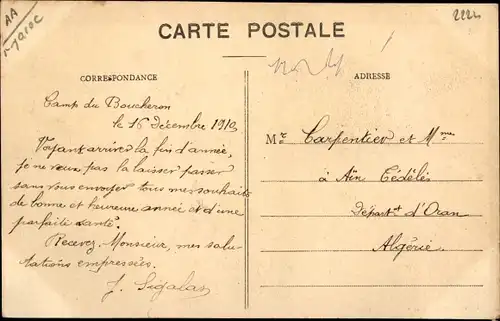 AA
Maroc
2224
CARTE POSTALE
CORRESPONDANCE
ADRESSE
Camp du Boucheron
le 16 décembre 1912
Voyant arriver la fin d'année,
je ne veux pas la laisser passer
sans vous envoyer tous mes souhaits
de bonne et heureuse année et d'une
parfaite santé.
Recevez, Monsieur, mes salu-
tations empressées.
J. Sigalas
Mr Carpentier et Mme
à Aïn Tédélès
Départt d'Oran
Algérie